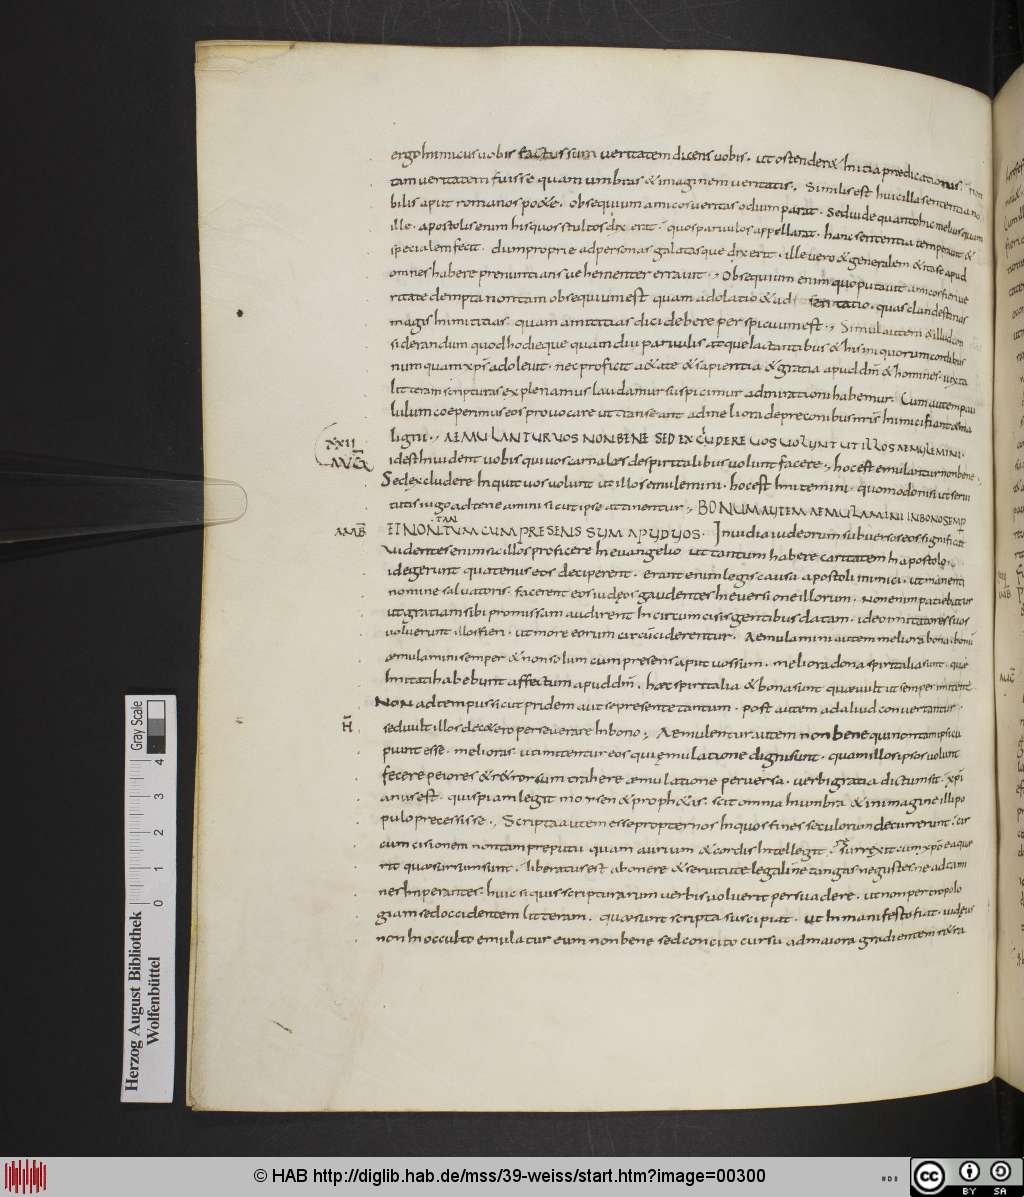 ergo inimicus uobis factus sum ueritatem dicens uobis . ut ostenderet initia predicationis . non
tam ueritatem fuisse quam umbras & imaginem ueritatis . Similis est huic illa sententia no
bilis aput romanos poetae . obsequium amicos ueritas odium parat . Sed uide quanto hic melius quam
ille . apostolus enim his quos stultos dixerat . quos paruulos appellarat . hanc sententia temperauit &
specialem fecit . dum proprie ad personas galatasque dixerit . ille uero & generalem & ita se apud
omnes habere prenuntians uehementer errauit . Obsequium enim quo putauit amicos fieri ue
ritate dempta non tam obsequium est quam adolatio & ad sentatio . quas clandestinas
magis inimicitias quam amicitias dici debere perspicuum est . Simul autem & illud con
siderandum quod hodieque quamdiu paruulis atque lactantibus & his in quorum cordibus
numquam xps adoleuit . nec proficit aetate & sapientia & gratia apud dm & homines . iuxta
litteram scripturas explenamus laudamur suspicimur admirationi habemur . Cum autem pau
lulum coeperimus eos prouocare ut transeant ad meliora de preconibus nris inimici fiant & ma
ligni . AEMULANTUR UOS NON BENE SED EXCLUDERE UOS UOLUNT UT ILLOS AEMULEMINI .
XXII
AUG
id est inuident uobis qui uos carnales de spiritalibus uolunt facere . hoc est emulantur non bene .
Sed excludere inquit uos uolunt ut illos emulemini . hoc est imitemini . quomodo nisi ut serui
tutis iugo adteneamini sicut ipse attinentur . BONUM AUTEM AEMULAMINI IN BONO SEMP
AMB
ET NON TANTUM CUM PRESENS SUM APUD UOS . Inuidia iudeorum subuersos eos significat
Uidentes enim illos proficere in euangelio ut tantum habere caritatem in apostolo .
id egerunt quatenus eos deciperent . erant enim legis causa apostoli inimici . ut manenti
nomine saluatoris . facerent eos iudeos gaudentes in euersione illorum . Non enim patiebatur
ut gratiam sibi promissam audirent incircumcisis gentibus datam . ideo imitatores suos
uoluerunt illos fieri . ut more eorum circuciderentur . Aemulamini autem meliora bona . bonu
aemulamini semper & non solum cum presens aput uos sum . meliora dona spiritalia sunt . que
imitati habebunt affectum apud dm . haec spiritalia & bona sunt quae uult ut semper imitent
Non ad tempus sicut pridem aut se presente tantum . post autem ad aliud conuertantur .
H
sed uult illos de cetero perseuerare in bono . Aemulentur autem non bene qui non tam ipsi cu
piunt esse . meliores ut imitentur eos qui emulatione digni sunt . quam illos ipsos uolunt
fecere peiores & retrorsum trahere aemulatione peruersa . uerbi gratia dictum sit . xpi
anus est . quispiam legit mosen & prophetis . scit omnia in umbra & in imagine illi po
pulo precessisse . Scripta autem esse propter nos in quos fines seculorum decurrerunt . cir
cumcisionem non tam preputii quam aurium & cordis intellegit . surrexit cum xpo ea que
rit quae sursum sunt . liberatus est ab onere & seruitute legali ne tangas ne gustes ne adtam
nes imperantes . huic si quis scripturarum uerbis uoluerit persuadere . ut non per tropolo
giam sed occidentem litteram . quae sunt scripta suscipiat . ut in manifesto fiat . iudeus
non in occulto emulatur eum non bene sed concito cursu ad maiora gradientem retra
Herzog August Bibliothek
Wolfenbüttel
Gray Scale
0 1 2 3 4
© HAB http://diglib.hab.de/mss/39-weiss/start.htm?image=00300
cc BY SA